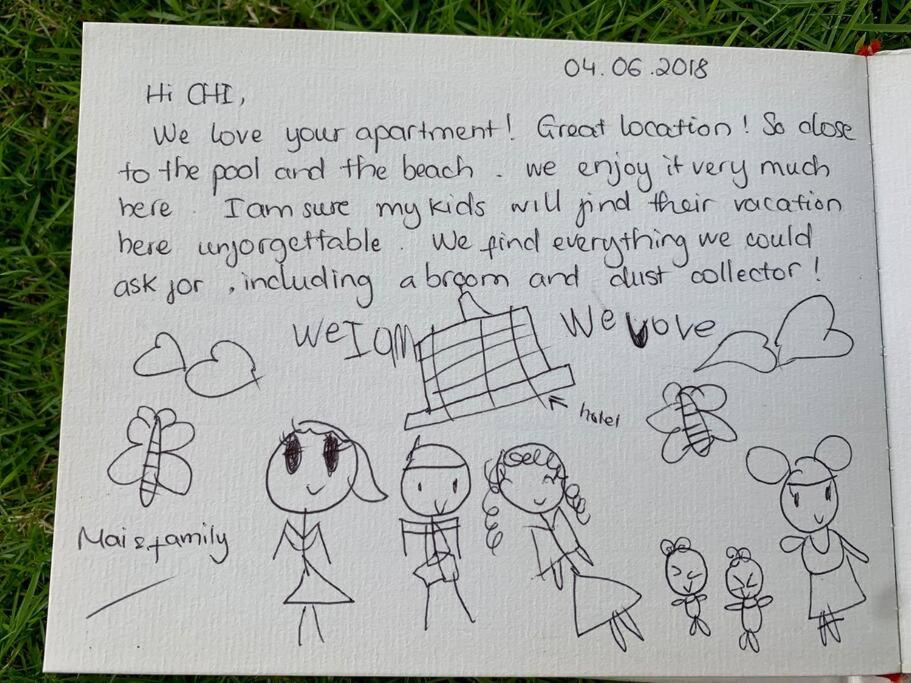 04.06.2018
Hi CHI,
We love your apartment! Great location! So close
to the pool and the beach. we enjoy it very much
here. I am sure my kids will find their vacation
here unforgettable. We find everything we could
ask for, including a broom and dust collector!
We I am
We love
hotel
Mai & family